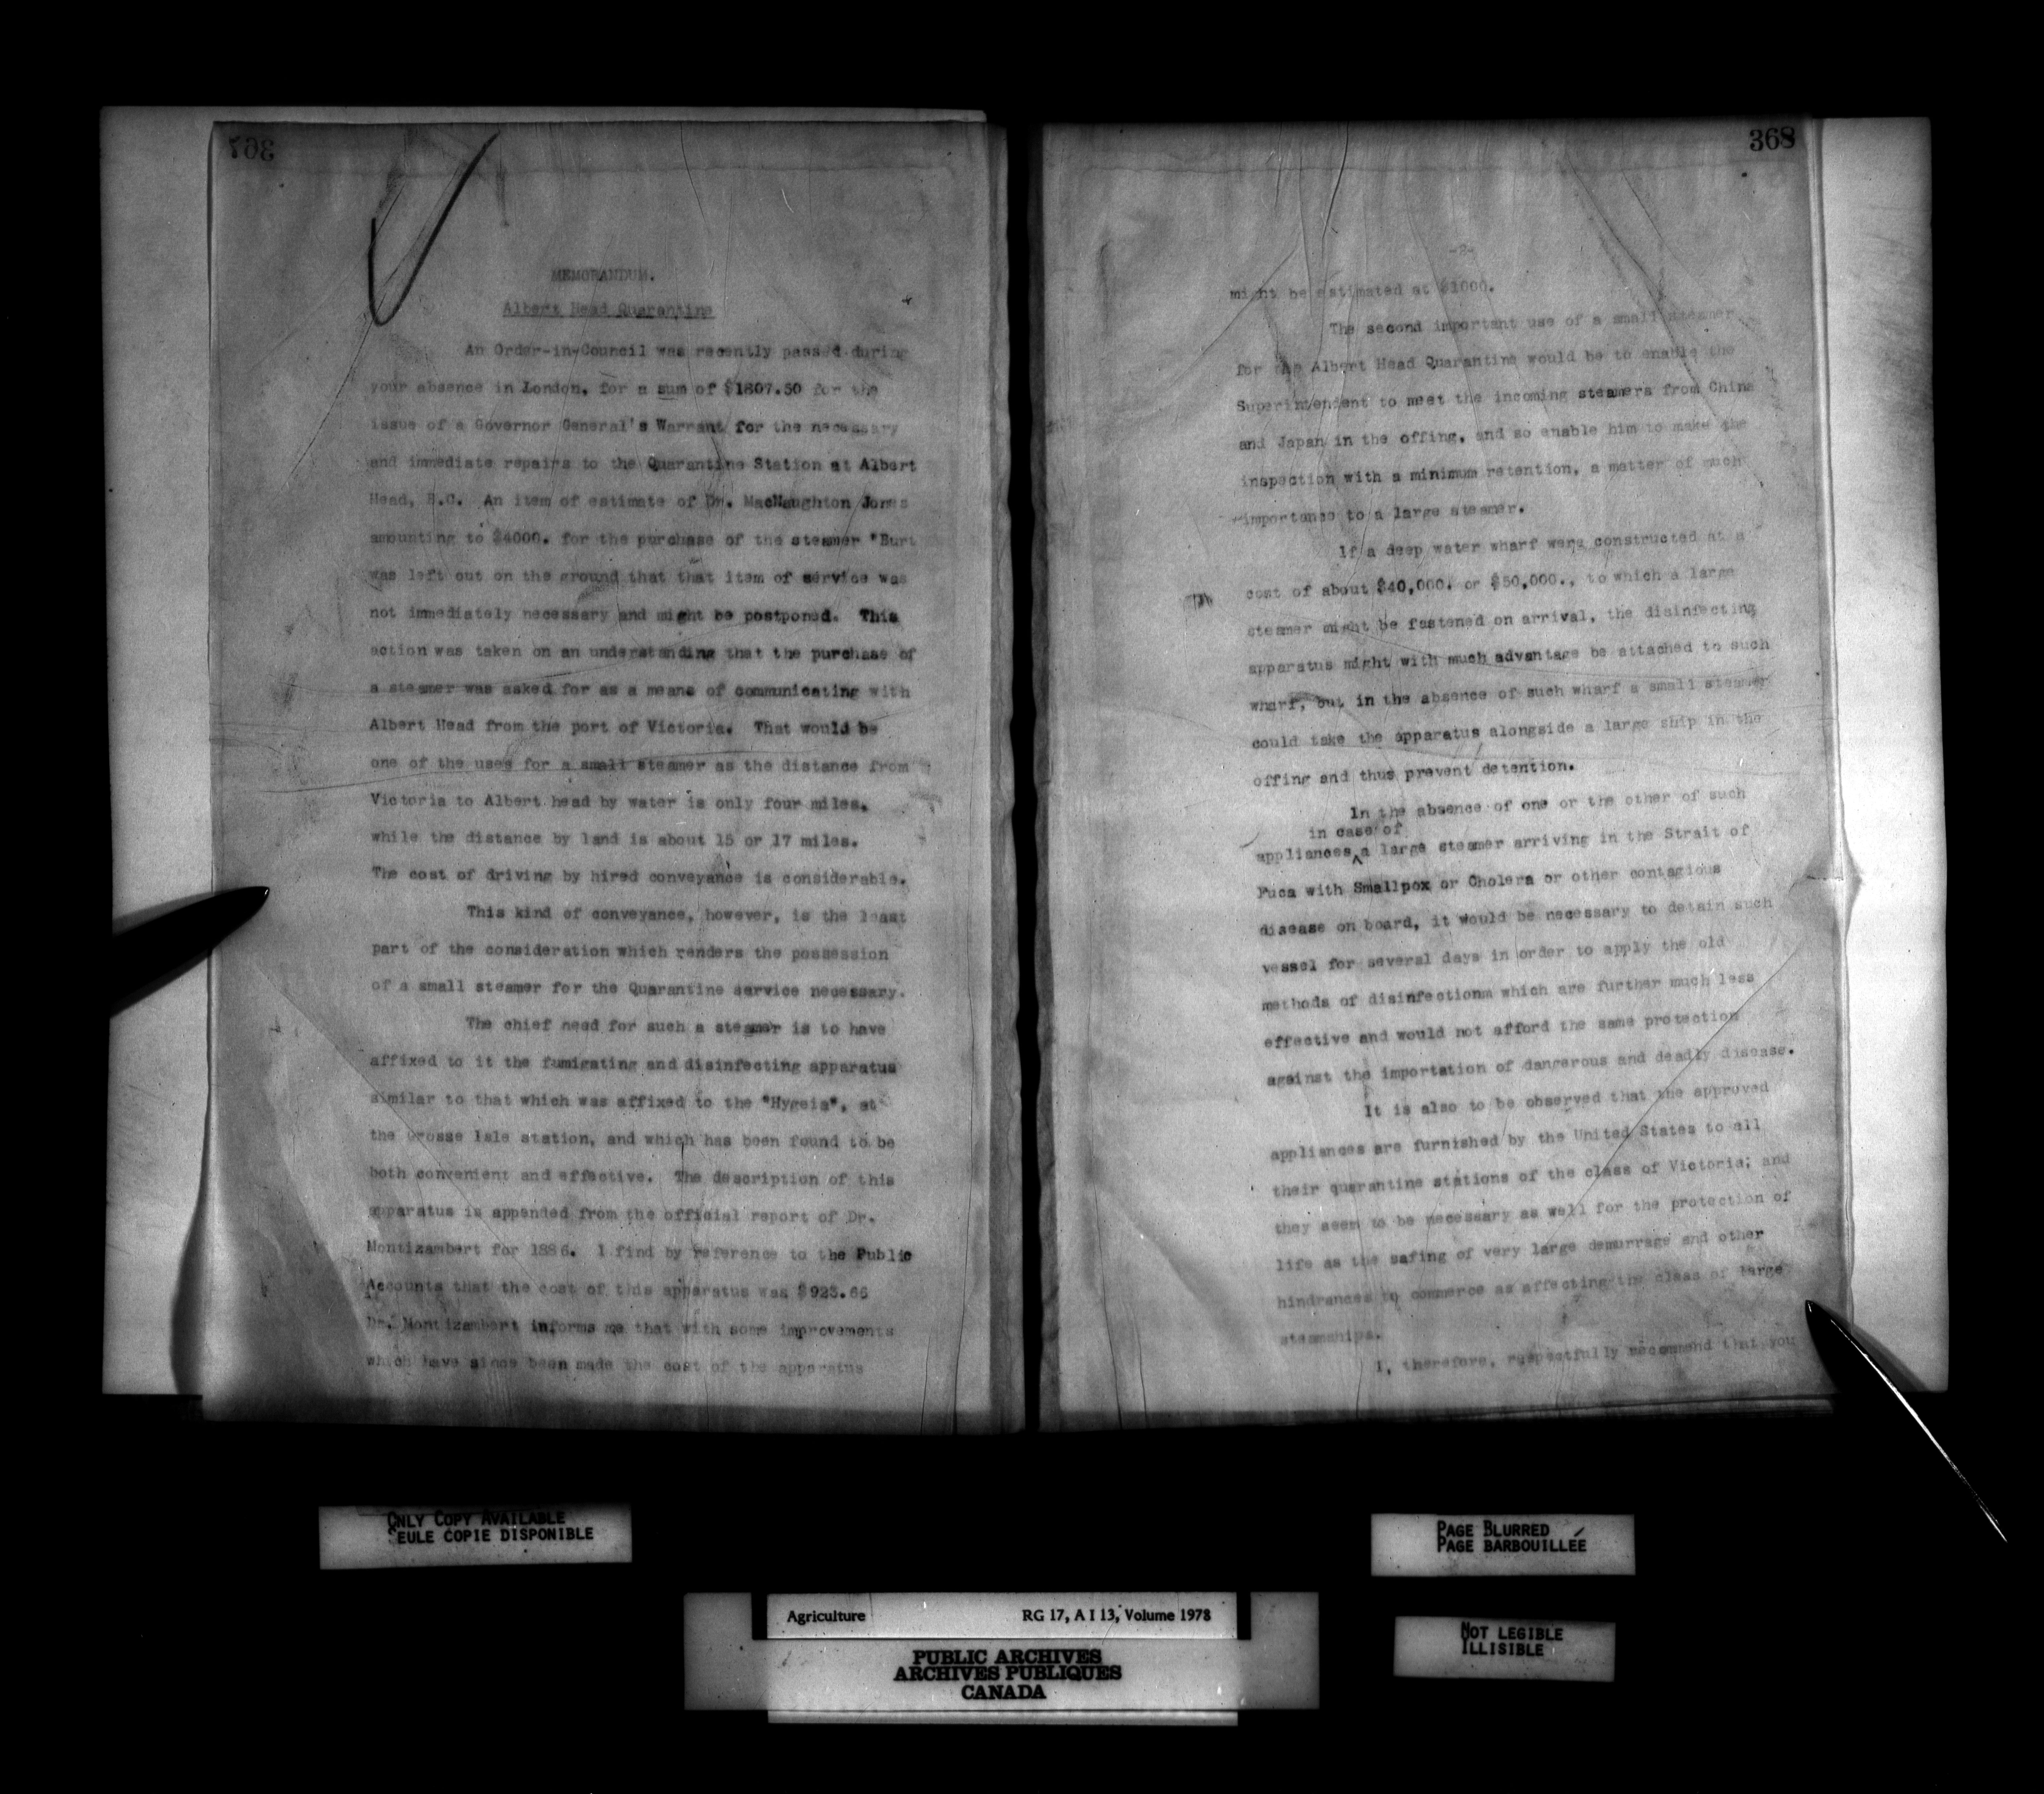 367
MEMORANDUM.
Albert Head Quarantine
An Order-in-Council was recently passed during
your absence in London, for a sum of $1807.50 for the
issue of a Governor General's Warrant for the necessary
and immediate repairs to the Quarantine Station at Albert
Head, B.C. An item of estimate of Dr. MacNaughton Jones
amounting to $4000. for the purchase of the steamer "Burt
was left out on the ground that that item of service was
not immediately necessary and might be postponed. This
action was taken on an understanding that the purchase of
a steamer was asked for as a means of communicating with
Albert Head from the port of Victoria. That would be
one of the uses for a small steamer as the distance from
Victoria to Albert head by water is only four miles,
while the distance by land is about 15 or 17 miles.
The cost of driving by hired conveyance is considerable.
This kind of conveyance, however, is the least
part of the consideration which renders the possession
of a small steamer for the Quarantine service necessary.
The chief need for such a steamer is to have
affixed to it the fumigating and disinfecting apparatus
similar to that which was affixed to the "Hygeia", at
the Grosse Isle station, and which has been found to be
both convenient and effective. The description of this
apparatus is appended from the official report of Dr.
Montizambert for 1886. I find by reference to the Public
Accounts that the cost of this apparatus was
Dr. Montizambert informs me that with some improvements
which have since been made the cost of the apparatus
368
-2-
might be estimated at $1000.
The second important use of a small steamer
for the Albert Head Quarantine would be to enable the
Superintendent to meet the incoming steamers from China
and Japan in the offing, and so enable him to make the
inspection with a minimum retention, a matter of much
importance to a large steamer.
If a deep water wharf were constructed at a
cost of about $40,000. or $50,000., to which a large
steamer might be fastened on arrival, the disinfecting
apparatus might with much advantage be attached to such
wharf, but in the absence of such wharf a small steamer
could take the apparatus alongside a large ship in the
offing and thus prevent detention.
In the absence of one or the other of such
in case of
appliances ^ a large steamer arriving in the Strait of
Fuca with Smallpox or Cholera or other contagious
disease on board, it would be necessary to detain such
vessel for several days in order to apply the old
methods of disinfectionm which are further much less
effective and would not afford the same protection
against the importation of dangerous and deadly disease.
It is also to be observed that the approved
appliances are furnished by the United States to all
their quarantine stations of the class of Victoria; and
they seem to be necessary as well for the protection of
life as the safing of very large demurrage and other
hindrances to commerce as affecting the class of large
steamships.
I, therefore, respectfully recommend that you
ONLY COPY AVAILABLE
SEULE COPIE DISPONIBLE
PAGE BLURRED
PAGE BARBOUILLÉE
Agriculture RG 17, A I 13, Volume 1978
NOT LEGIBLE
ILLISIBLE
PUBLIC ARCHIVES
ARCHIVES PUBLIQUES
CANADA